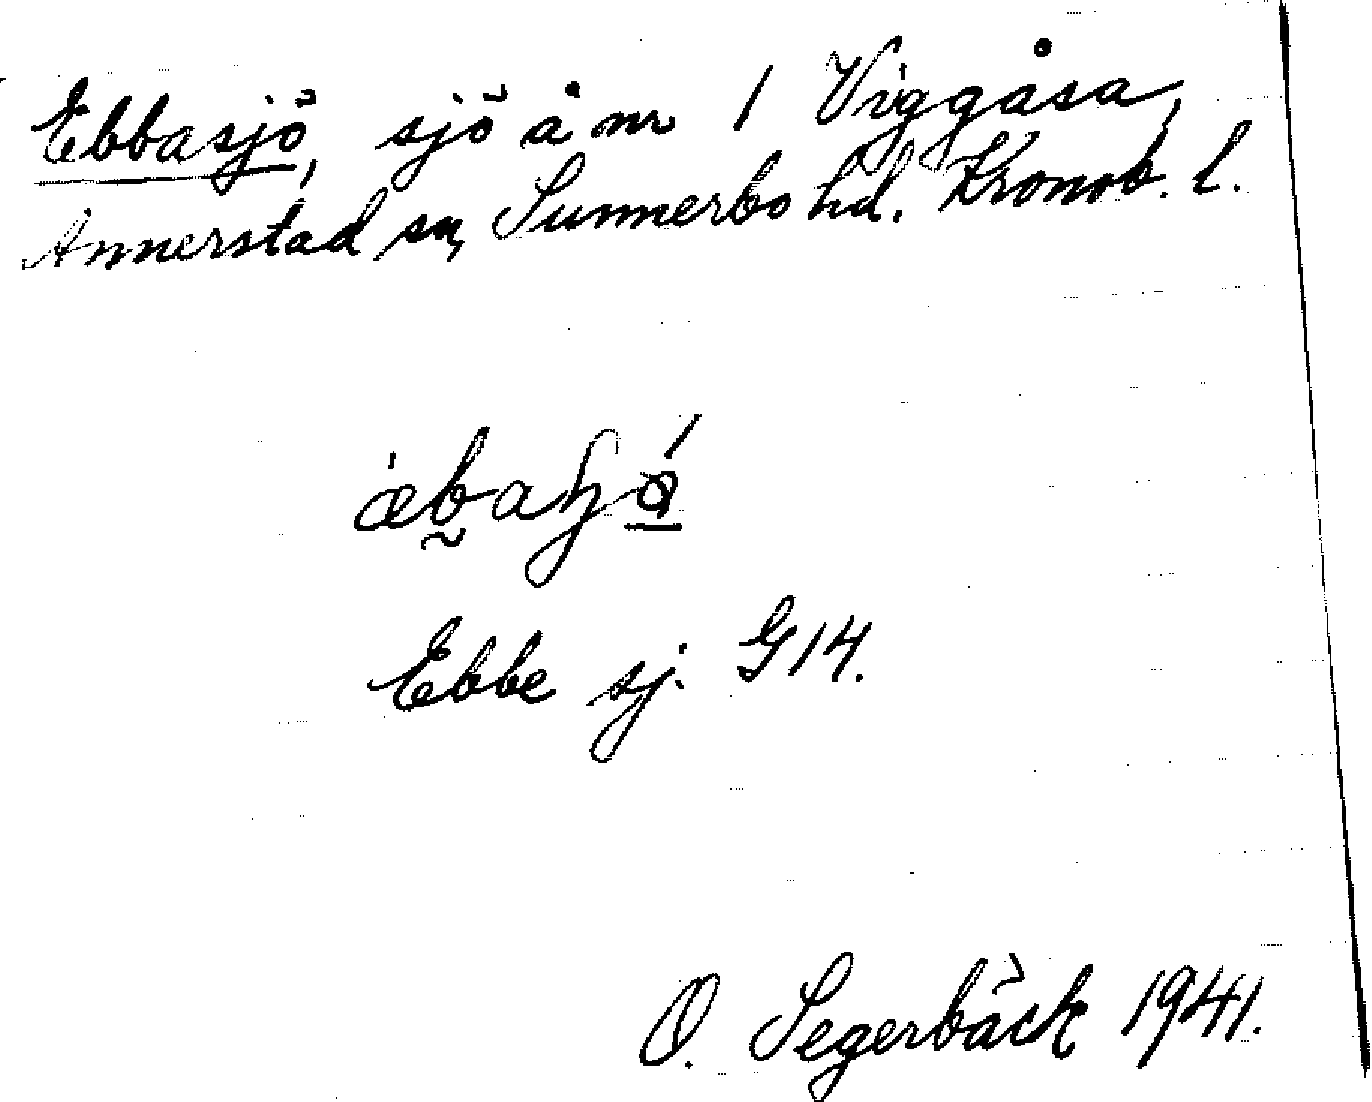 Ebbasjö, sjö å nr 1 Viggåsa,
Annerstad sn, Sunnerbo hd. Kronob. l.
Ebbe sj. G14.
O. Segerbäck 1941.